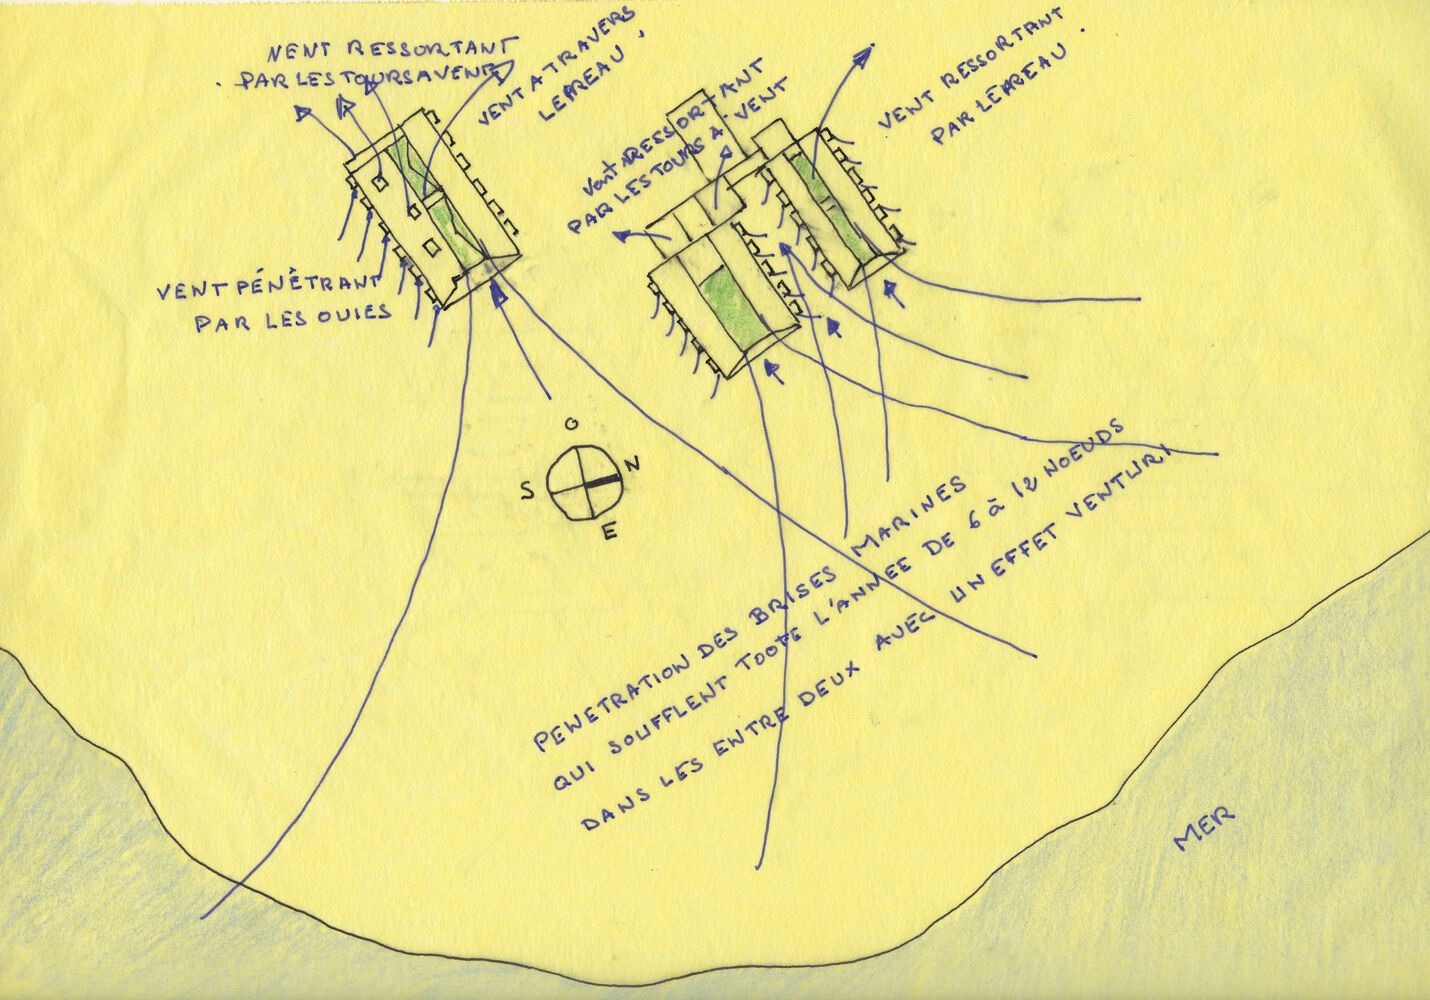 NENT RESSORTANT
. PAR LES TOURS A VENT
VENT A TRAVERS
LE PREAU .
Vent RESSORTANT
PAR LES TOURS A VENT
VENT RESSORTANT .
PAR LE PREAU
VENT PÉNÈTRANT
PAR LES OUIES
O
N
S
E
PENETRATION DES BRISES MARINES
QUI SOUFFLENT TOOTE L'ANNEE DE 6 à 12 NOEUDS
DANS LES ENTRE DEUX AVEC UN EFFET VENTURI
MER